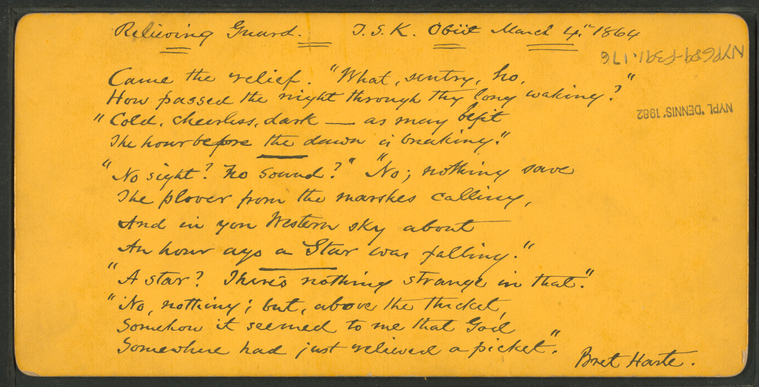 Relieving Guard. T. S. K. Obiit March 4th 1864
Came the relief. "What, sentry, ho,
How passed the night through thy long waking?"
"Cold, cheerless, dark — as may befit
The hour before the dawn is breaking."
"No sight? No sound?" "No; nothing save
The plover from the marshes calling,
And in yon Western sky about
An hour ago a Star was falling."
"A star? There's nothing strange in that."
"No, nothing; but, above the thicket,
Somehow it seemed to me that God
Somewhere had just relieved a picket."
Bret Harte.
NYPL 'DENNIS' 1982